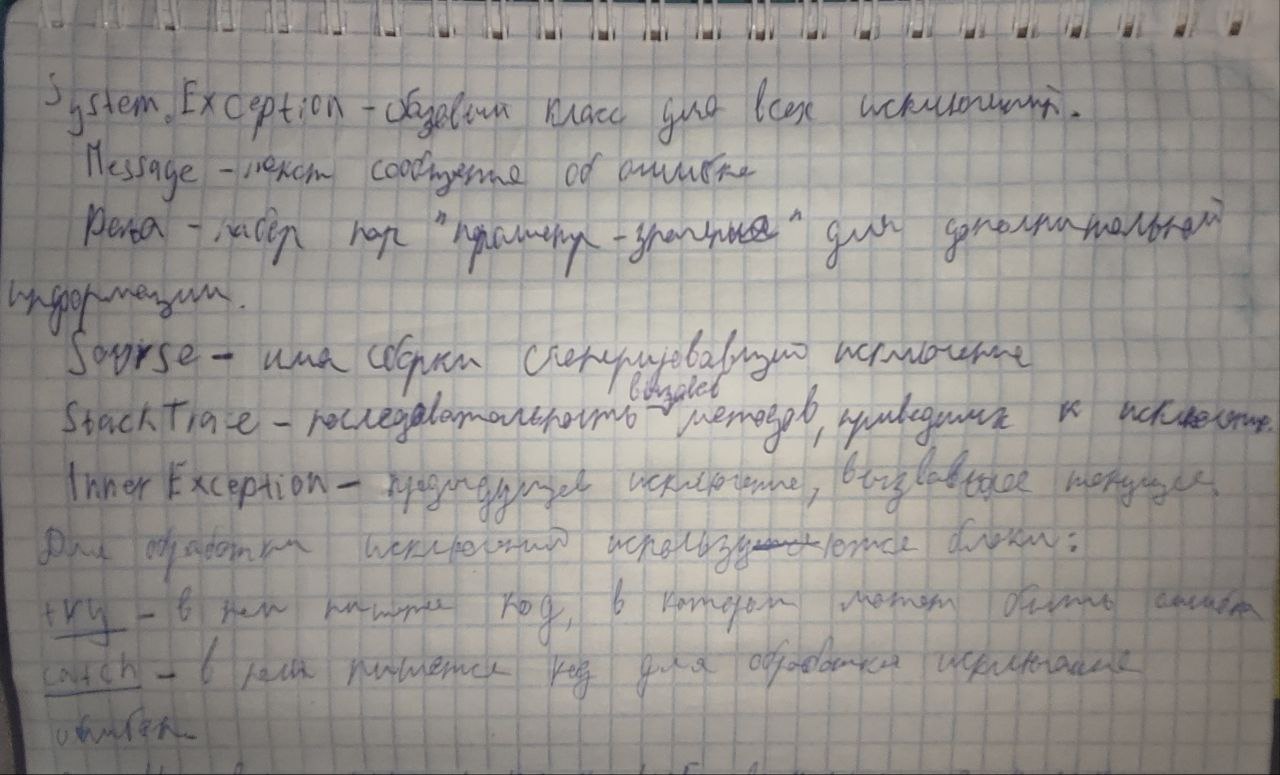 System.Exception - базовый класс для всех исключений.
Message - текст сообщения об ошибке
Дата - набор пар "параметр - значение" для дополнительной
информации.
Sourse - имя сборки сгенерировавший исключение
StackTrace - последовательность вызовов методов, приводимых к
InnerException - предыдущее исключение, вызвавшее текущее.
Для обработки исключений используются блоки:
try - в нем пишется код, в котором может быть ошибка
catch - в нем пишется код для обработки исключение
ошибки.